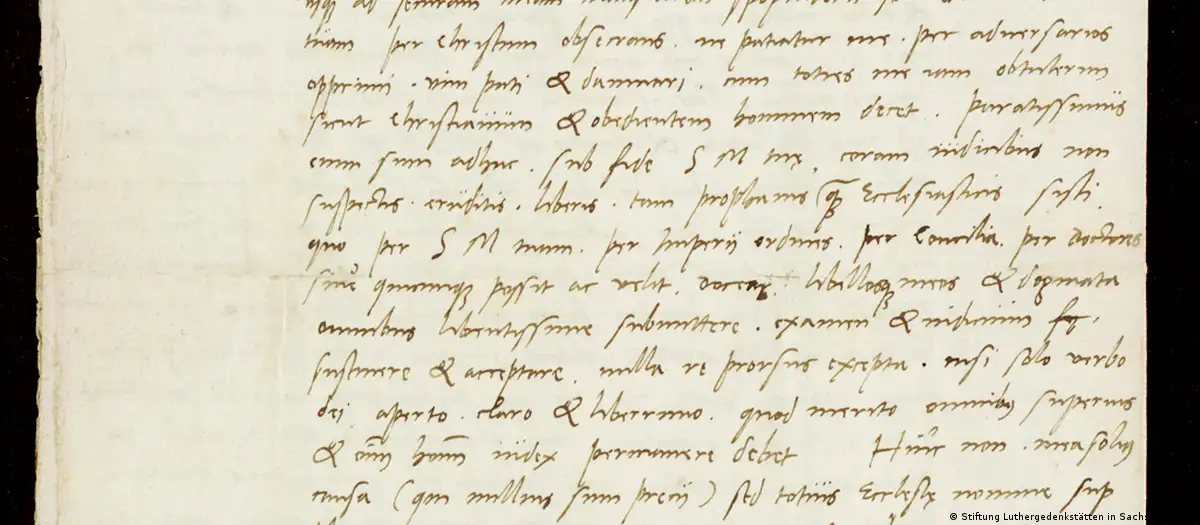 tuam per Christum obsecrans . ne patiatur me . per adversarios
opprimi . vim pati & damnari . cum toties me iam obtulerim
sicut Christianum & obedientem hominem decet . paratissimus
enim sum adhuc . sub fide S M tuę , coram iudicibus non
suspectis . eruditis . liberis . tam prophanis quam Ecclesiasticis sisti .
quo per S M tuam . per Imperij ordines . per Concilia . per doctores
sive quicunque possit ac velit . docear . libellosque meos & dogmata
omnibus libentissime submittere . examen & iudicium
sustinere & acceptare . nulla re prorsus excepta . nisi solo verbo
dei aperto . claro & liberrimo . quod merito omnibus superius
& omnium hominum iudex permanere debet Hinc non . mea solius
causa ( qui nullius sum precij ) sed totius Ecclesię nomine sup
© Stiftung Luthergedenkstätten in Sachs